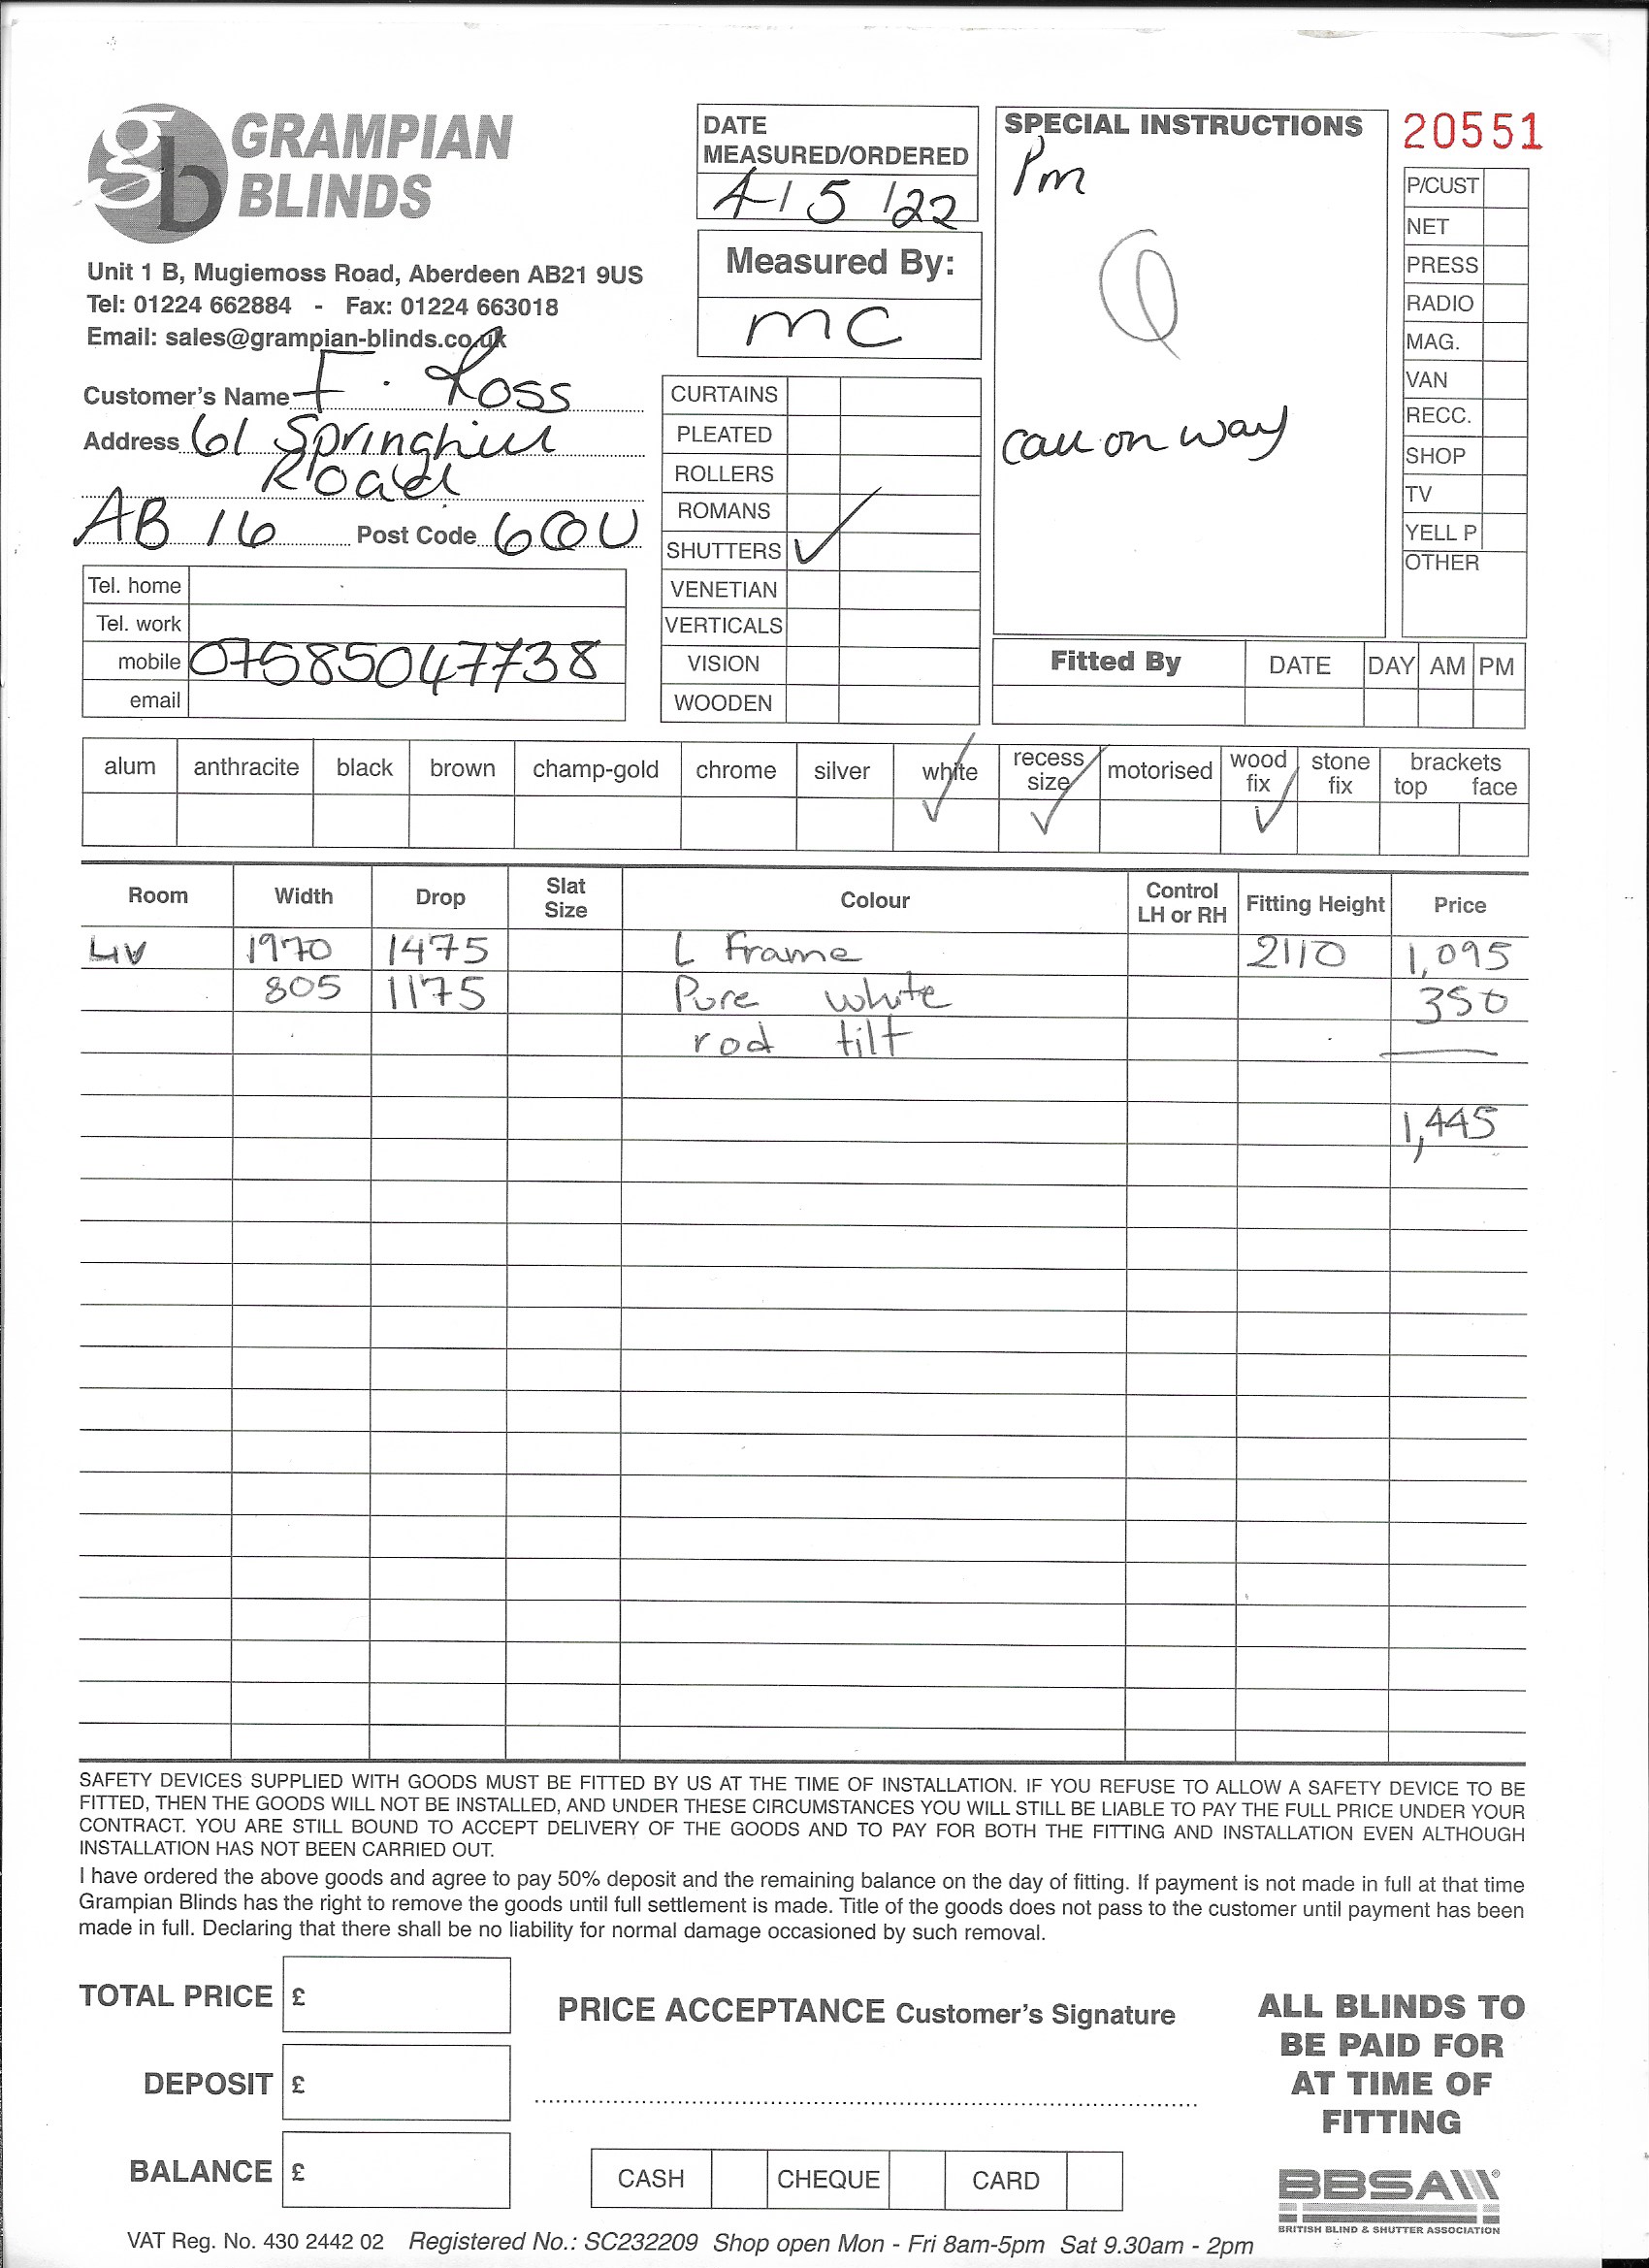 gb GRAMPIAN
BLINDS
Unit 1 B, Mugiemoss Road, Aberdeen AB21 9US
Tel: 01224 662884 - Fax: 01224 663018
Email: sales@grampian-blinds.co.uk
Customer's Name F. Ross
Address 61 Springhill
Road
AB 16 Post Code 6QU
Tel. home
Tel. work
mobile 07585047738
email
DATE
MEASURED/ORDERED
4/5/22
Measured By:
MC
CURTAINS
PLEATED
ROLLERS
ROMANS
SHUTTERS ✓
VENETIAN
VERTICALS
VISION
WOODEN
SPECIAL INSTRUCTIONS
Pm
Q
Call on way
20551
P/CUST
NET
PRESS
RADIO
MAG.
VAN
RECC.
SHOP
TV
YELL P
OTHER
Fitted By DATE DAY AM PM
alum anthracite black brown champ-gold chrome silver white recess size motorised wood fix stone fix brackets top face
✓ ✓ ✓
Room Width Drop Slat Size Colour Control LH or RH Fitting Height Price
LIV 1970 1475 L Frame 2110 1,095
805 1175 Pure white 350
rod tilt
1,445
SAFETY DEVICES SUPPLIED WITH GOODS MUST BE FITTED BY US AT THE TIME OF INSTALLATION. IF YOU REFUSE TO ALLOW A SAFETY DEVICE TO BE
FITTED, THEN THE GOODS WILL NOT BE INSTALLED, AND UNDER THESE CIRCUMSTANCES YOU WILL STILL BE LIABLE TO PAY THE FULL PRICE UNDER YOUR
CONTRACT. YOU ARE STILL BOUND TO ACCEPT DELIVERY OF THE GOODS AND TO PAY FOR BOTH THE FITTING AND INSTALLATION EVEN ALTHOUGH
INSTALLATION HAS NOT BEEN CARRIED OUT.
I have ordered the above goods and agree to pay 50% deposit and the remaining balance on the day of fitting. If payment is not made in full at that time
Grampian Blinds has the right to remove the goods until full settlement is made. Title of the goods does not pass to the customer until payment has been
made in full. Declaring that there shall be no liability for normal damage occasioned by such removal.
TOTAL PRICE £
DEPOSIT £
BALANCE £
PRICE ACCEPTANCE Customer's Signature
CASH CHEQUE CARD
ALL BLINDS TO
BE PAID FOR
AT TIME OF
FITTING
BBSA
BRITISH BLIND & SHUTTER ASSOCIATION
VAT Reg. No. 430 2442 02 Registered No.: SC232209 Shop open Mon - Fri 8am-5pm Sat 9.30am - 2pm